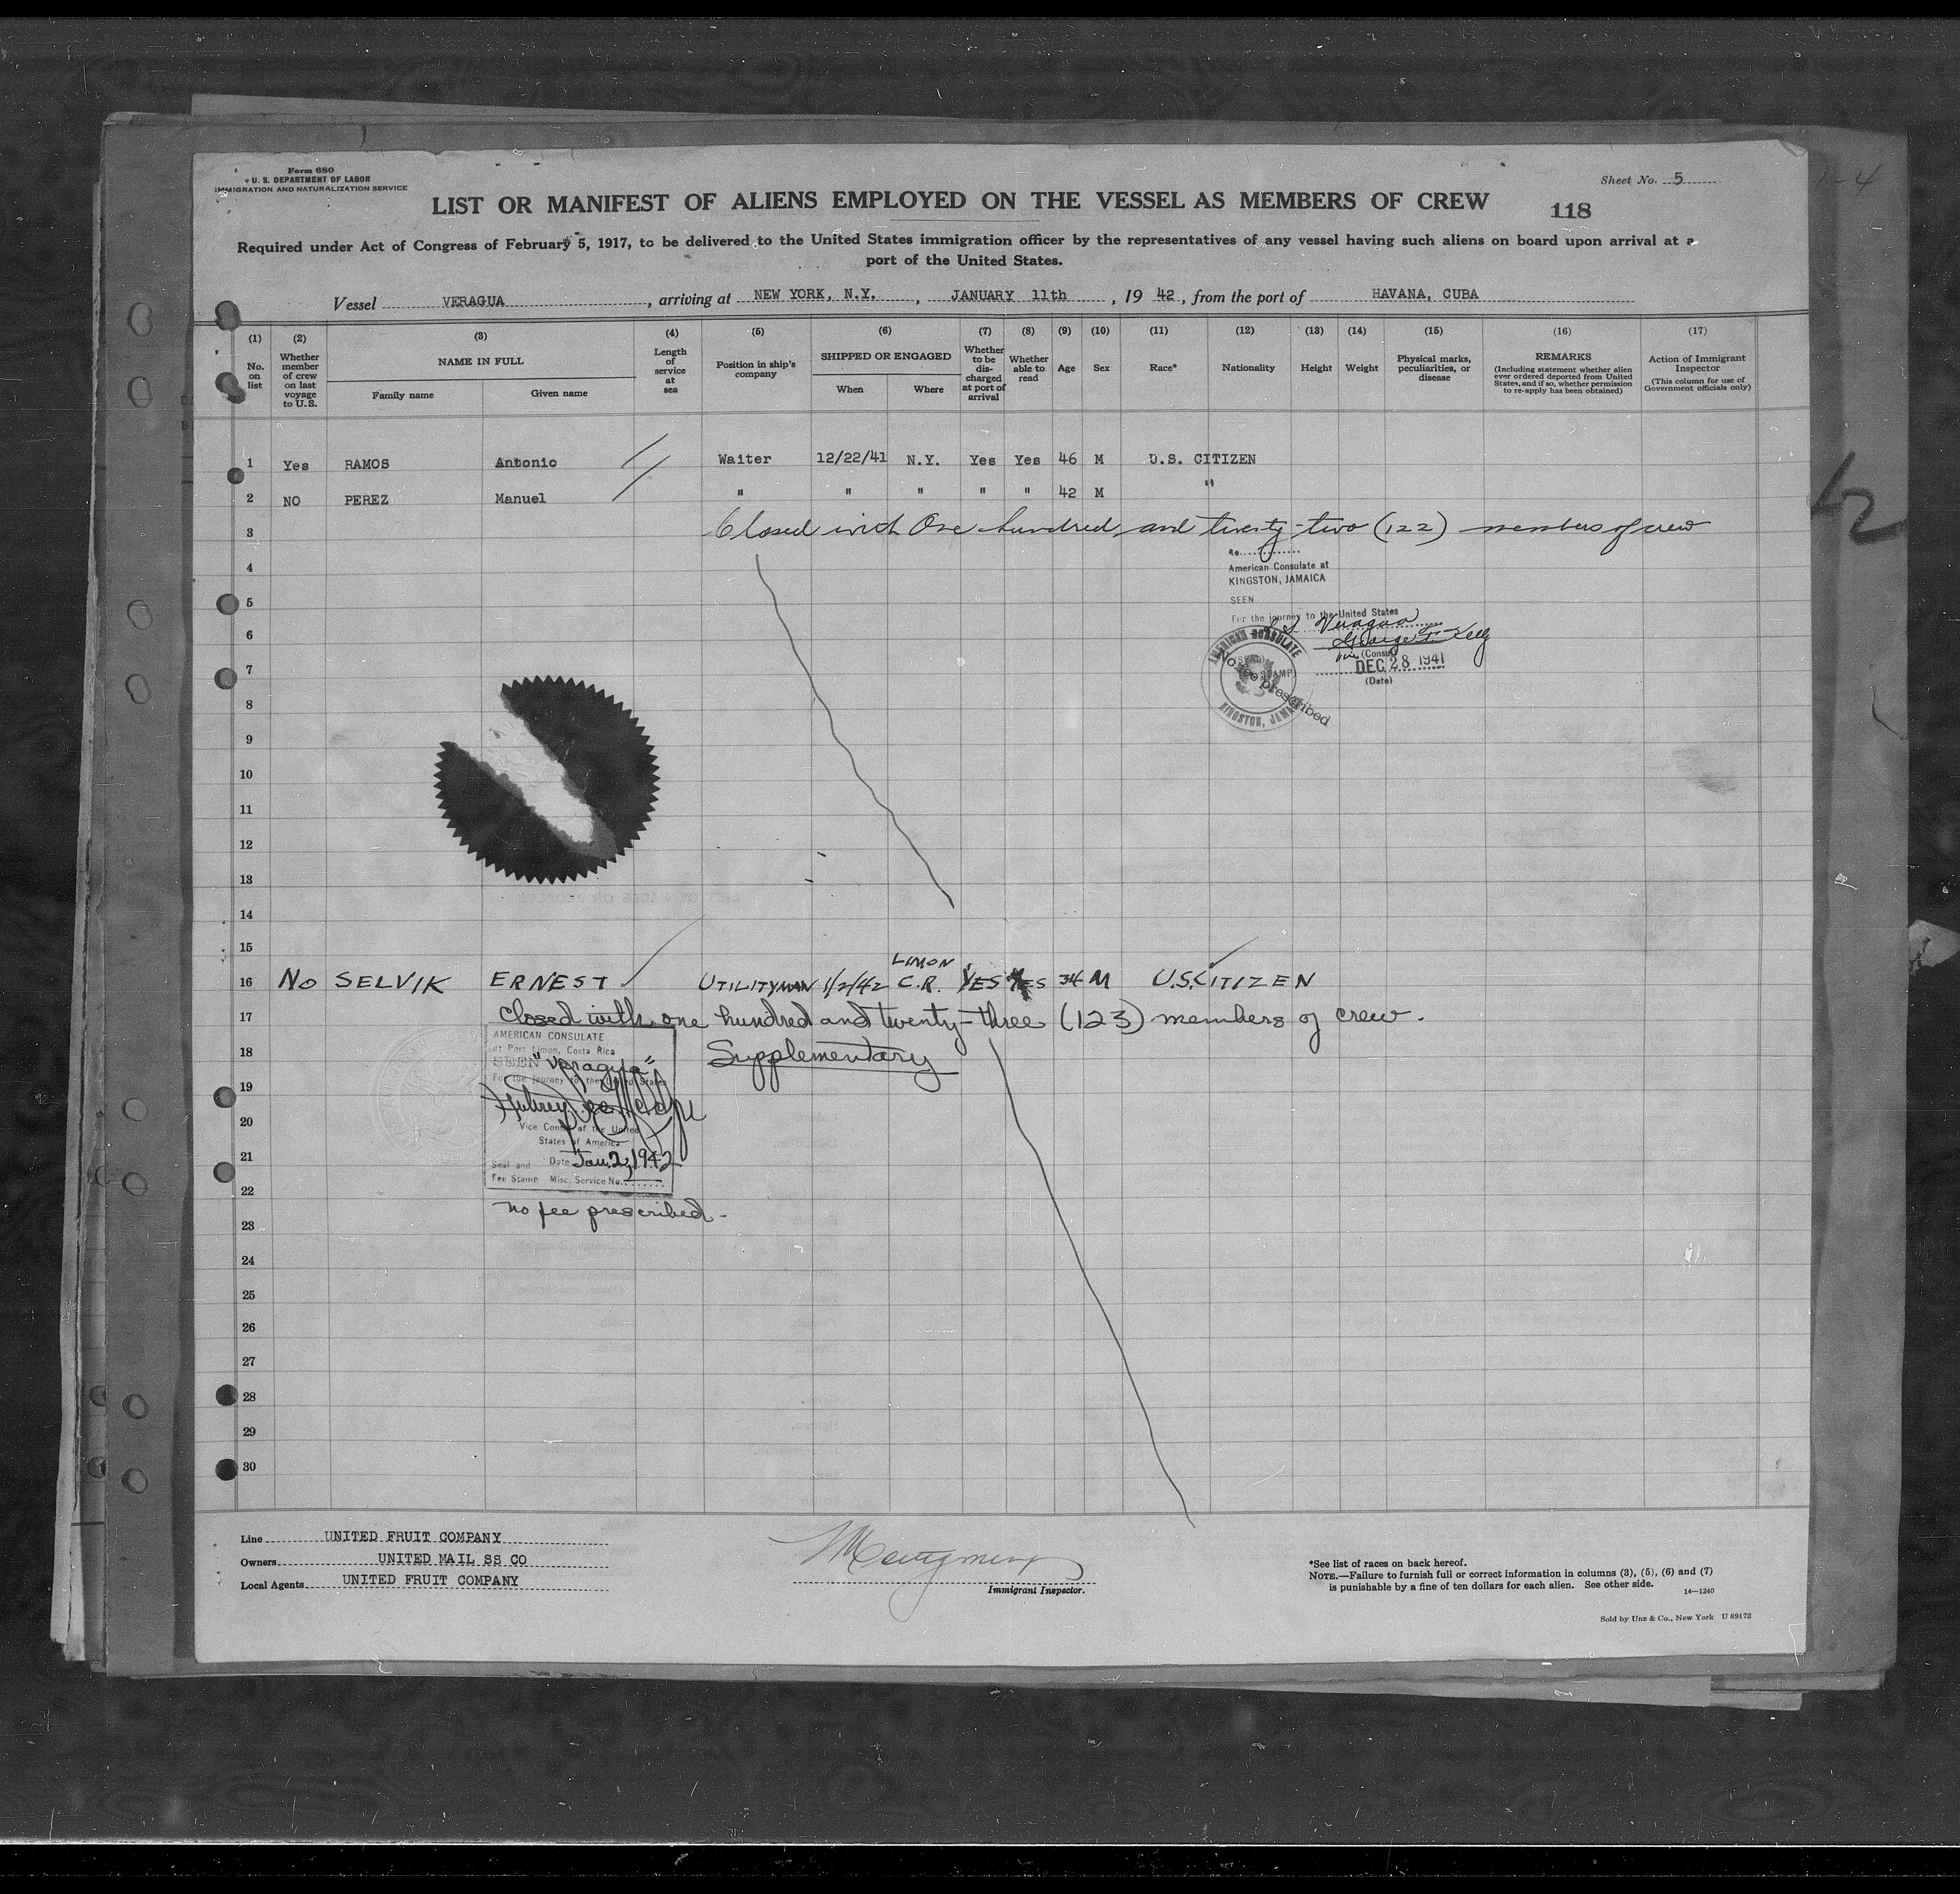 Form 680
U. S. DEPARTMENT OF LABOR
IMMIGRATION AND NATURALIZATION SERVICE
Sheet No. 5
LIST OR MANIFEST OF ALIENS EMPLOYED ON THE VESSEL AS MEMBERS OF CREW
118
Required under Act of Congress of February 5, 1917, to be delivered to the United States immigration officer by the representatives of any vessel having such aliens on board upon arrival at a
port of the United States.
Vessel VERAGUA, arriving at NEW YORK, N.Y., JANUARY 11th, 19 42, from the port of HAVANA, CUBA
(1) (2) (3) (4) (5) (6) (7) (8) (9) (10) (11) (12) (13) (14) (15) (16) (17)
No. on list
Whether member of crew on last voyage to U.S.
NAME IN FULL
Family name
Given name
Length of service at sea
Position in ship's company
SHIPPED OR ENGAGED
When
Where
Whether to be discharged at port of arrival
Whether able to read
Age
Sex
Race*
Nationality
Height
Weight
Physical marks, peculiarities, or disease
REMARKS
(Including statement whether alien ever ordered deported from United States, and if so, whether permission to re-apply has been obtained)
Action of Immigrant Inspector
(This column for use of Government officials only)
1 Yes RAMOS Antonio Waiter 12/22/41 N.Y. Yes Yes 46 M U.S. CITIZEN
2 NO PEREZ Manuel " " " " " 42 M "
3 Closed with One hundred and twenty-two (122) members of crew
No.
4 American Consulate at
KINGSTON, JAMAICA
5 SEEN
For the journey to the United States
6 SS Veragua
George T. Kelly
Vice (Consul)
7 DEC 28 1941
(Date)
AMERICAN CONSULATE
KINGSTON, JAMAICA
No fee prescribed
8
9
10
11
12
13
14
15
LIMON
16 NO SELVIK ERNEST UTILITYMAN 1/2/42 C.R. YES YES 34 M U.S. CITIZEN
17 Closed with one hundred and twenty-three (123) members of crew.
AMERICAN CONSULATE
at Port Limon, Costa Rica
18 Supplementary
SEEN "Veragua"
For the journey to the United States
19
20
Vice Consul of the United
States of America
21 Seal and Date Jan. 2, 1942
Fee Stamp Misc. Service No.
22
no fee prescribed.
23
24
25
26
27
28
29
30
Line UNITED FRUIT COMPANY
Owners UNITED MAIL SS CO
Local Agents UNITED FRUIT COMPANY
Montgomery
Immigrant Inspector.
*See list of races on back hereof.
NOTE.—Failure to furnish full or correct information in columns (3), (5), (6) and (7)
is punishable by a fine of ten dollars for each alien. See other side.
14—1240
Sold by Unz & Co., New York U 89172